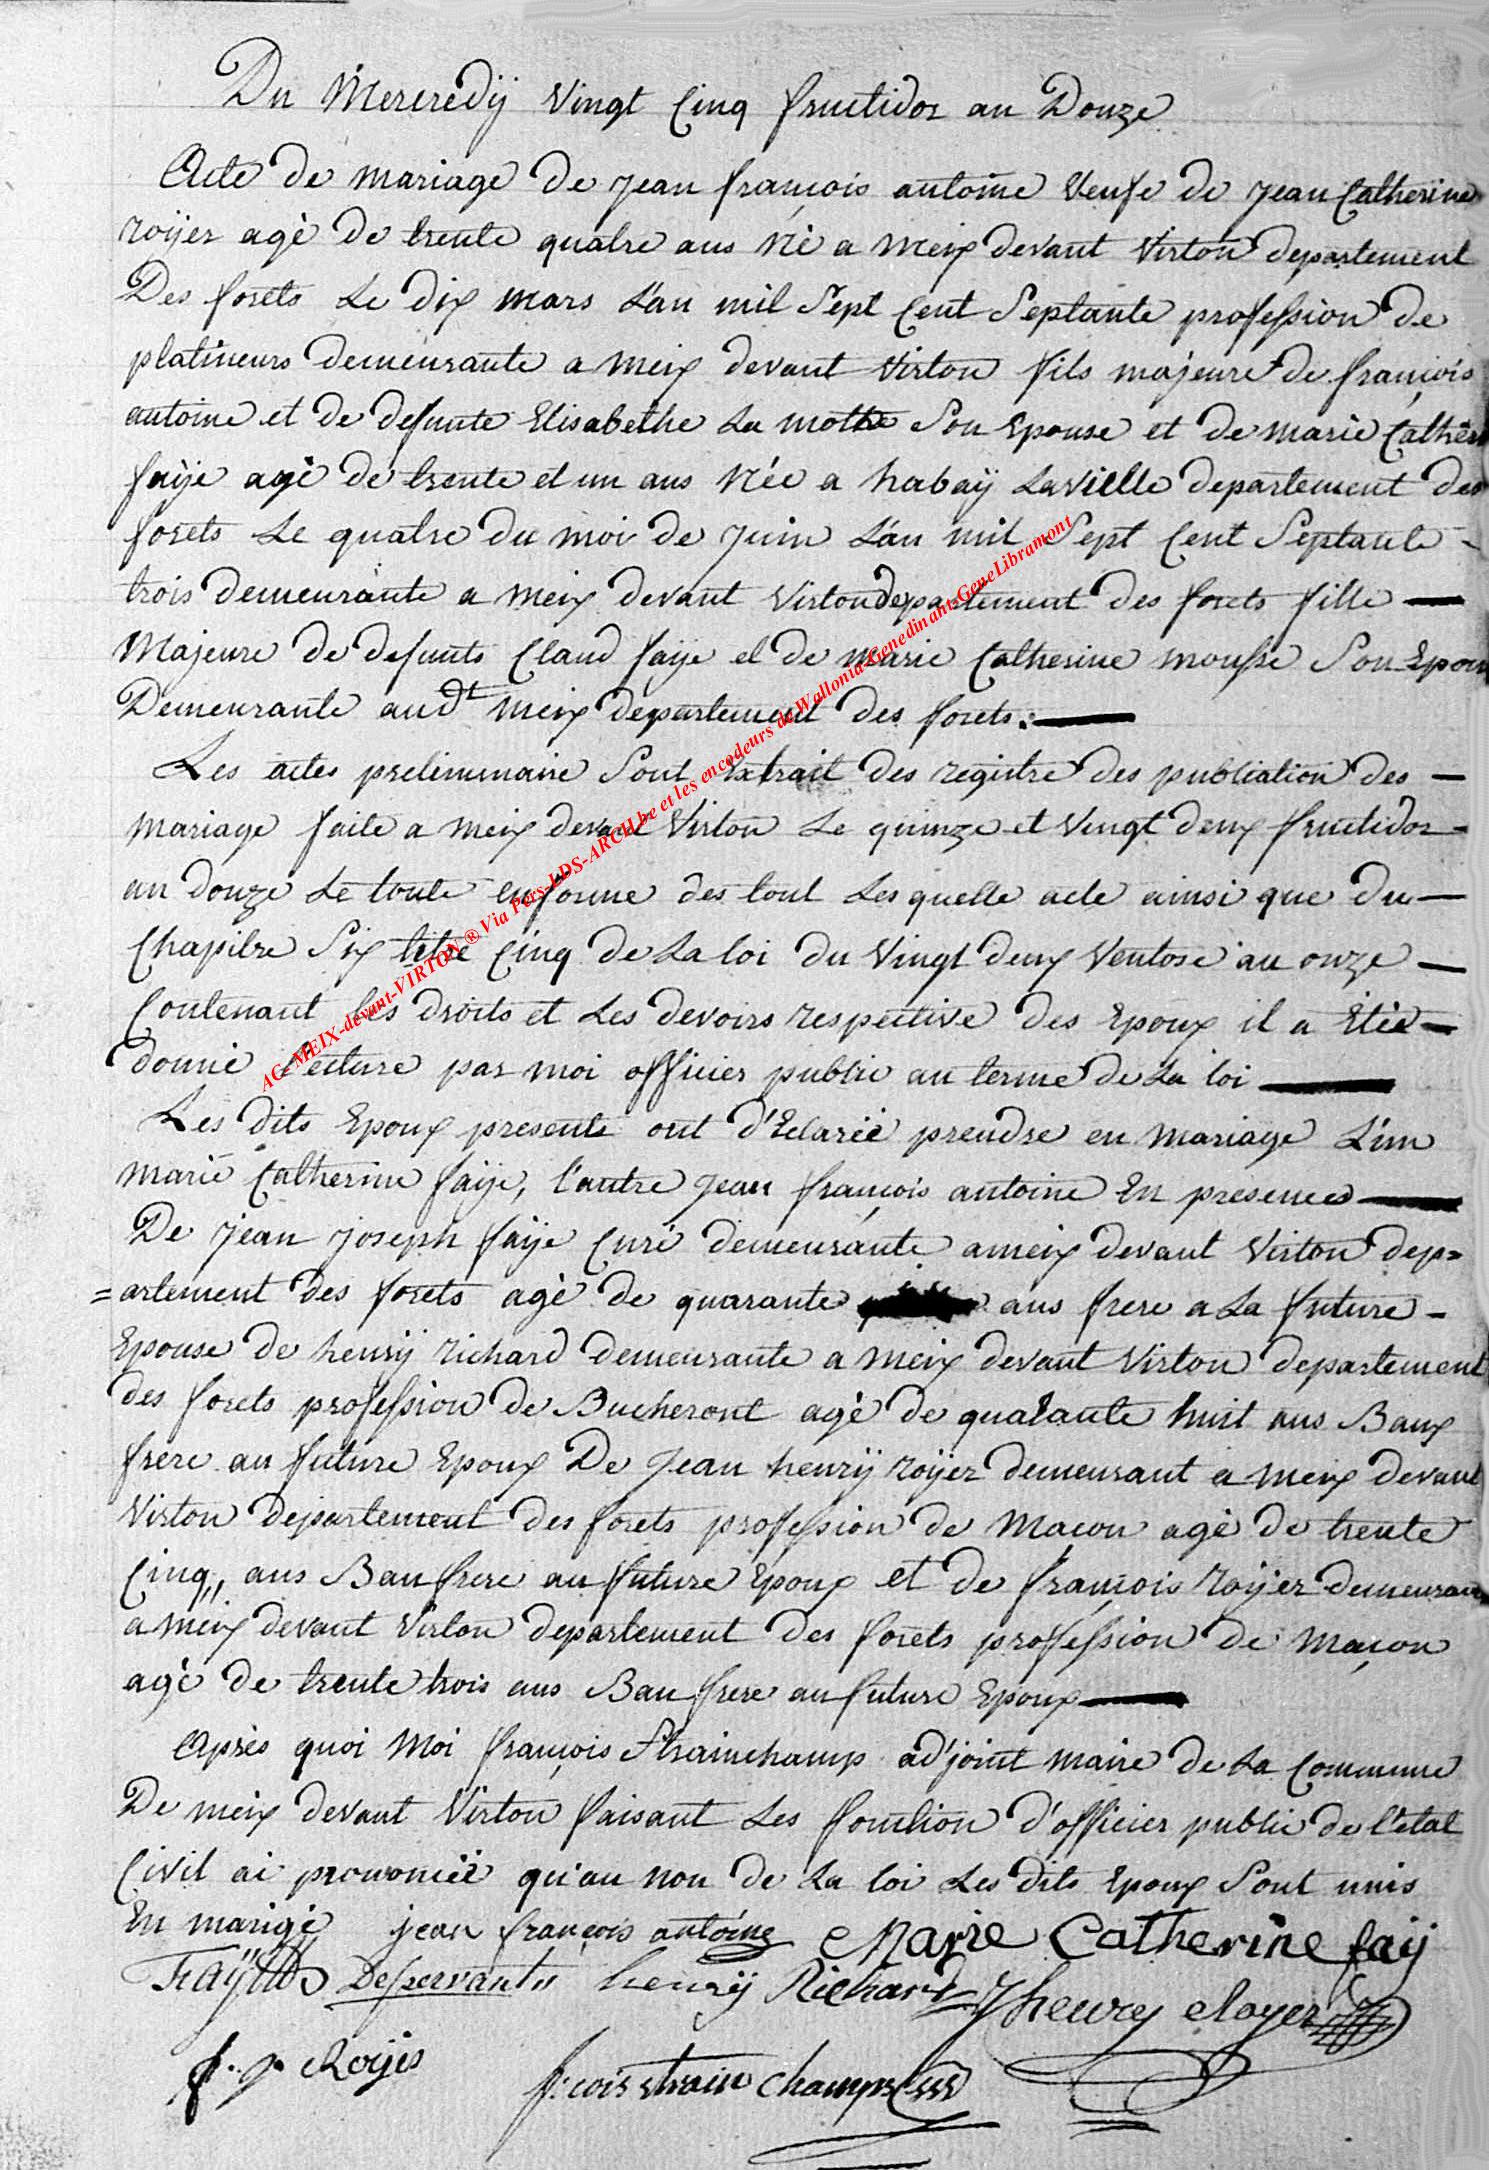 Du Mercredÿ Vingt Cinq fructidor an Douze
Acte de mariage de jean françois antoine Veufe de jean Catherine
roÿer agè de trente quatre ans Nè a meix devant Virton departement
Des forets Le dix mars L'an mil Sept Cent Septante profession de
platineurs demeurante a meix devant Virton fils majeure de françois
antoine et de defunte Elisabethe La mothe Son Epouse et de marie Cathèri
faÿe agè de trente et un ans Née a habaÿ La Vielle departement des
forets Le quatre du moi de Juin L'an mil Sept Cent Septante -
trois demeurante a meix devant Virton departement des forets fille —
Majeure de defunts Claud faÿe et de marie Catherine mousse Son Epou
Demeurante audt meix departement des forets. —
Les actes preliminaire Sont Extrait des registre des publiation des —
mariage faite a meix devant Virton Le quinze et Vingt deux fructidor =
an douze Le toute en forme des tout Les quelle acte ainsi que du —
Chapitre Six titre Cinq de La loi du Vingt deux Ventose an onze —
Contenant les droits et Les devoirs respective des Epoux il a Étée —
donné lecture par moi officier public au terme de La loi —
Les dits Epoux presents ont d'Eclarèe prendre en mariage L'un
marie Catherine faÿe, l'autre jean françois antoine En presences —
De jean joseph faÿe Curé demeurante a meix devant Virton dep=
=artement des forets agè de quarante ans frere a La future -
Epouse de henrÿ richard demeurante a meix devant Virton departement
des forets profession de Bucheront agè de quarante huit ans Baux
frere au future Epoux De Jean henrÿ roÿer demeurant a meix devant
Virton departement des forets profession de Macon agè de trente
Cinq,, ans Baufrere au future Epoux et de françois roÿer demeuran
a meix devant Virton departement des forets profession de maçon
agè de trente trois ans Baufrere au future Epoux —
Après quoi Moi françois Strainchamp ad'joint maire de La Commune
De meix devant Virton faisant Les fonction d'officier public de l'etat
Civil ai prononcéé qu'au non de La loi Les dits Epoux Sont unis
En marigé jean françois antoine Marie Catherine faÿ
Faÿ Desservant henrÿ Richard J henry Royer
f. j. Royer f:cois strainchamps
AC-MEIX-devant-VIRTON ® Via Pers-LDS-ARCH.be et les encodeurs de Wallonia-Genedinant-GeneLibramont